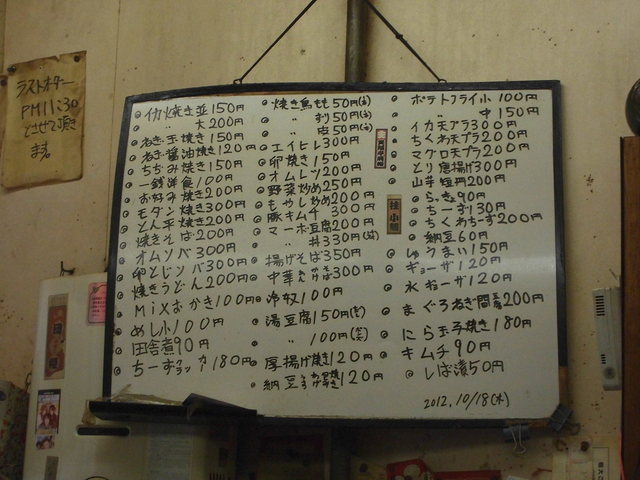 ラストオーダー
PM11:30
とさせて頂き
ます。
イカ焼き並150円
〃 大200円
ねぎ玉焼き150円
ねぎ醤油焼き120円
ちぢみ焼き150円
一銭洋食100円
お好み焼き200円
モダン焼き300円
とん平焼き200円
焼きそば200円
オムソバ300円
卵とじソバ300円
焼きうどん200円
MIXおかき100円
めし小100円
田舎煮90円
ちーずクラッカー180円
焼き鳥もも50円(本)
〃 ずり50円(本)
〃 皮50円(本)
エイヒレ300円
卵焼き150円
オムレツ200円
野菜炒め250円
もやし炒め200円
豚キムチ 300円
マーボ豆腐200円
〃 丼330円
揚げそば350円
中華そば300円
冷奴100円
湯豆腐150円
〃 100円
厚揚げ焼き120円
納豆 120円
ポテトフライ小 100円
〃 中 150円
イカ天プラ300円
ちくわ天プラ200円
マグロ天プラ200円
とり唐揚げ300円
山芋短冊200円
らっきょ90円
ちーず130円
ちくわちーず200円
納豆60円
しゅうまい150円
ギョーザ120円
水ギョーザ120円
まぐろねぎ間200円
にら玉子焼き180円
キムチ90円
しば漬50円
2012.10/18(木)